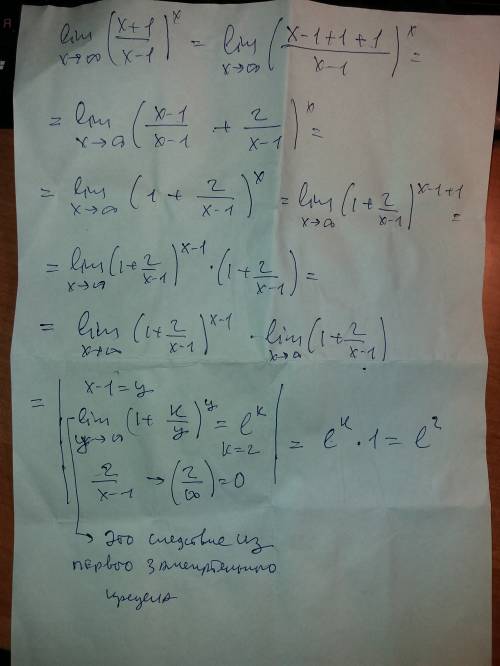 lim x→∞ ((x+1)/(x-1))^x = lim x→∞ ((x-1+1+1)/(x-1))^x =
= lim x→∞ ((x-1)/(x-1) + 2/(x-1))^x =
= lim x→∞ (1 + 2/(x-1))^x = lim x→∞ (1 + 2/(x-1))^(x-1+1) =
= lim x→∞ (1 + 2/(x-1))^(x-1) · (1 + 2/(x-1)) =
= lim x→∞ (1 + 2/(x-1))^(x-1) · lim x→∞ (1 + 2/(x-1))
= | x-1=y
lim y→∞ (1 + k/y)^y = e^k
k=2
2/(x-1) → (2/∞) = 0 | = e^k · 1 = e^2
→ Это следствие из
первого замечательного
предела